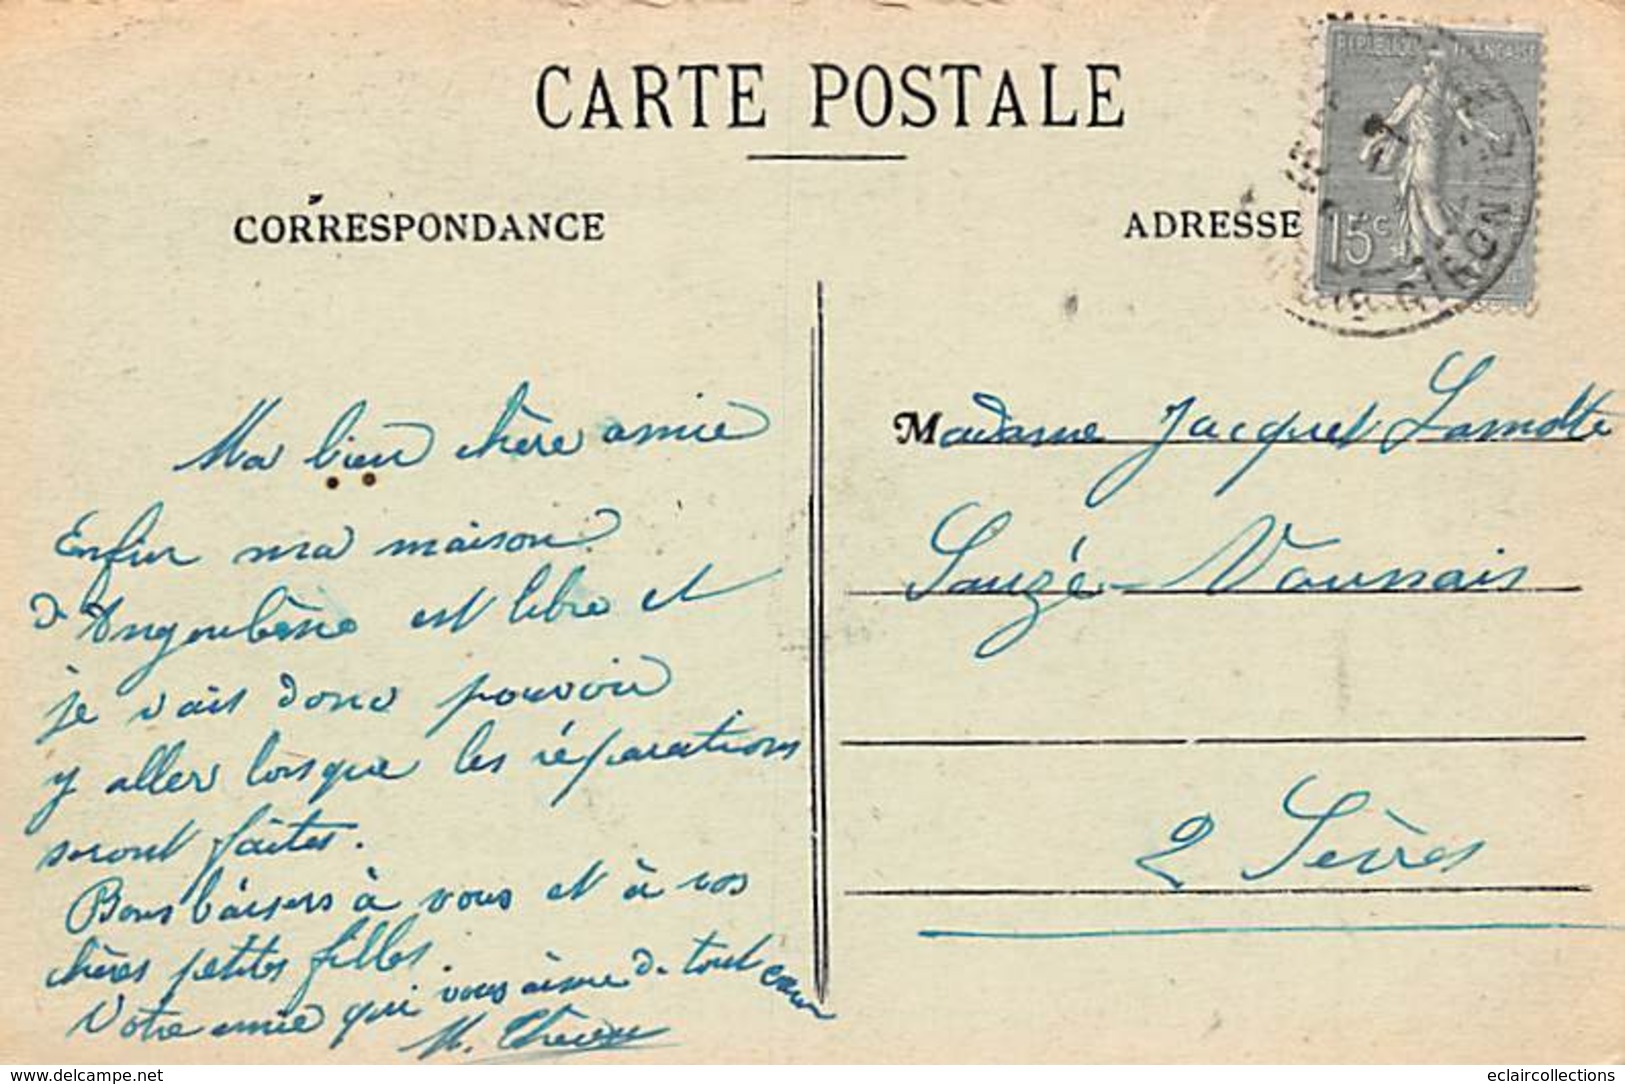 CARTE POSTALE
CORRESPONDANCE
ADRESSE
REPUBLIQUE FRANÇAISE
15c
GIRONDE
Ma bien chère amie
Enfin ma maison
d'Angoulème est libre et
je vais donc pouvoir
y aller lorsque les réparations
seront faites.
Bons baisers à vous et à vos
chères petites filles.
Votre amie qui vous aime de tout coeur
M.
Madame Jacquet Lamotte
Sauzé-Vaussais
2 Sèvres
www.delcampe.net
eclaircollections